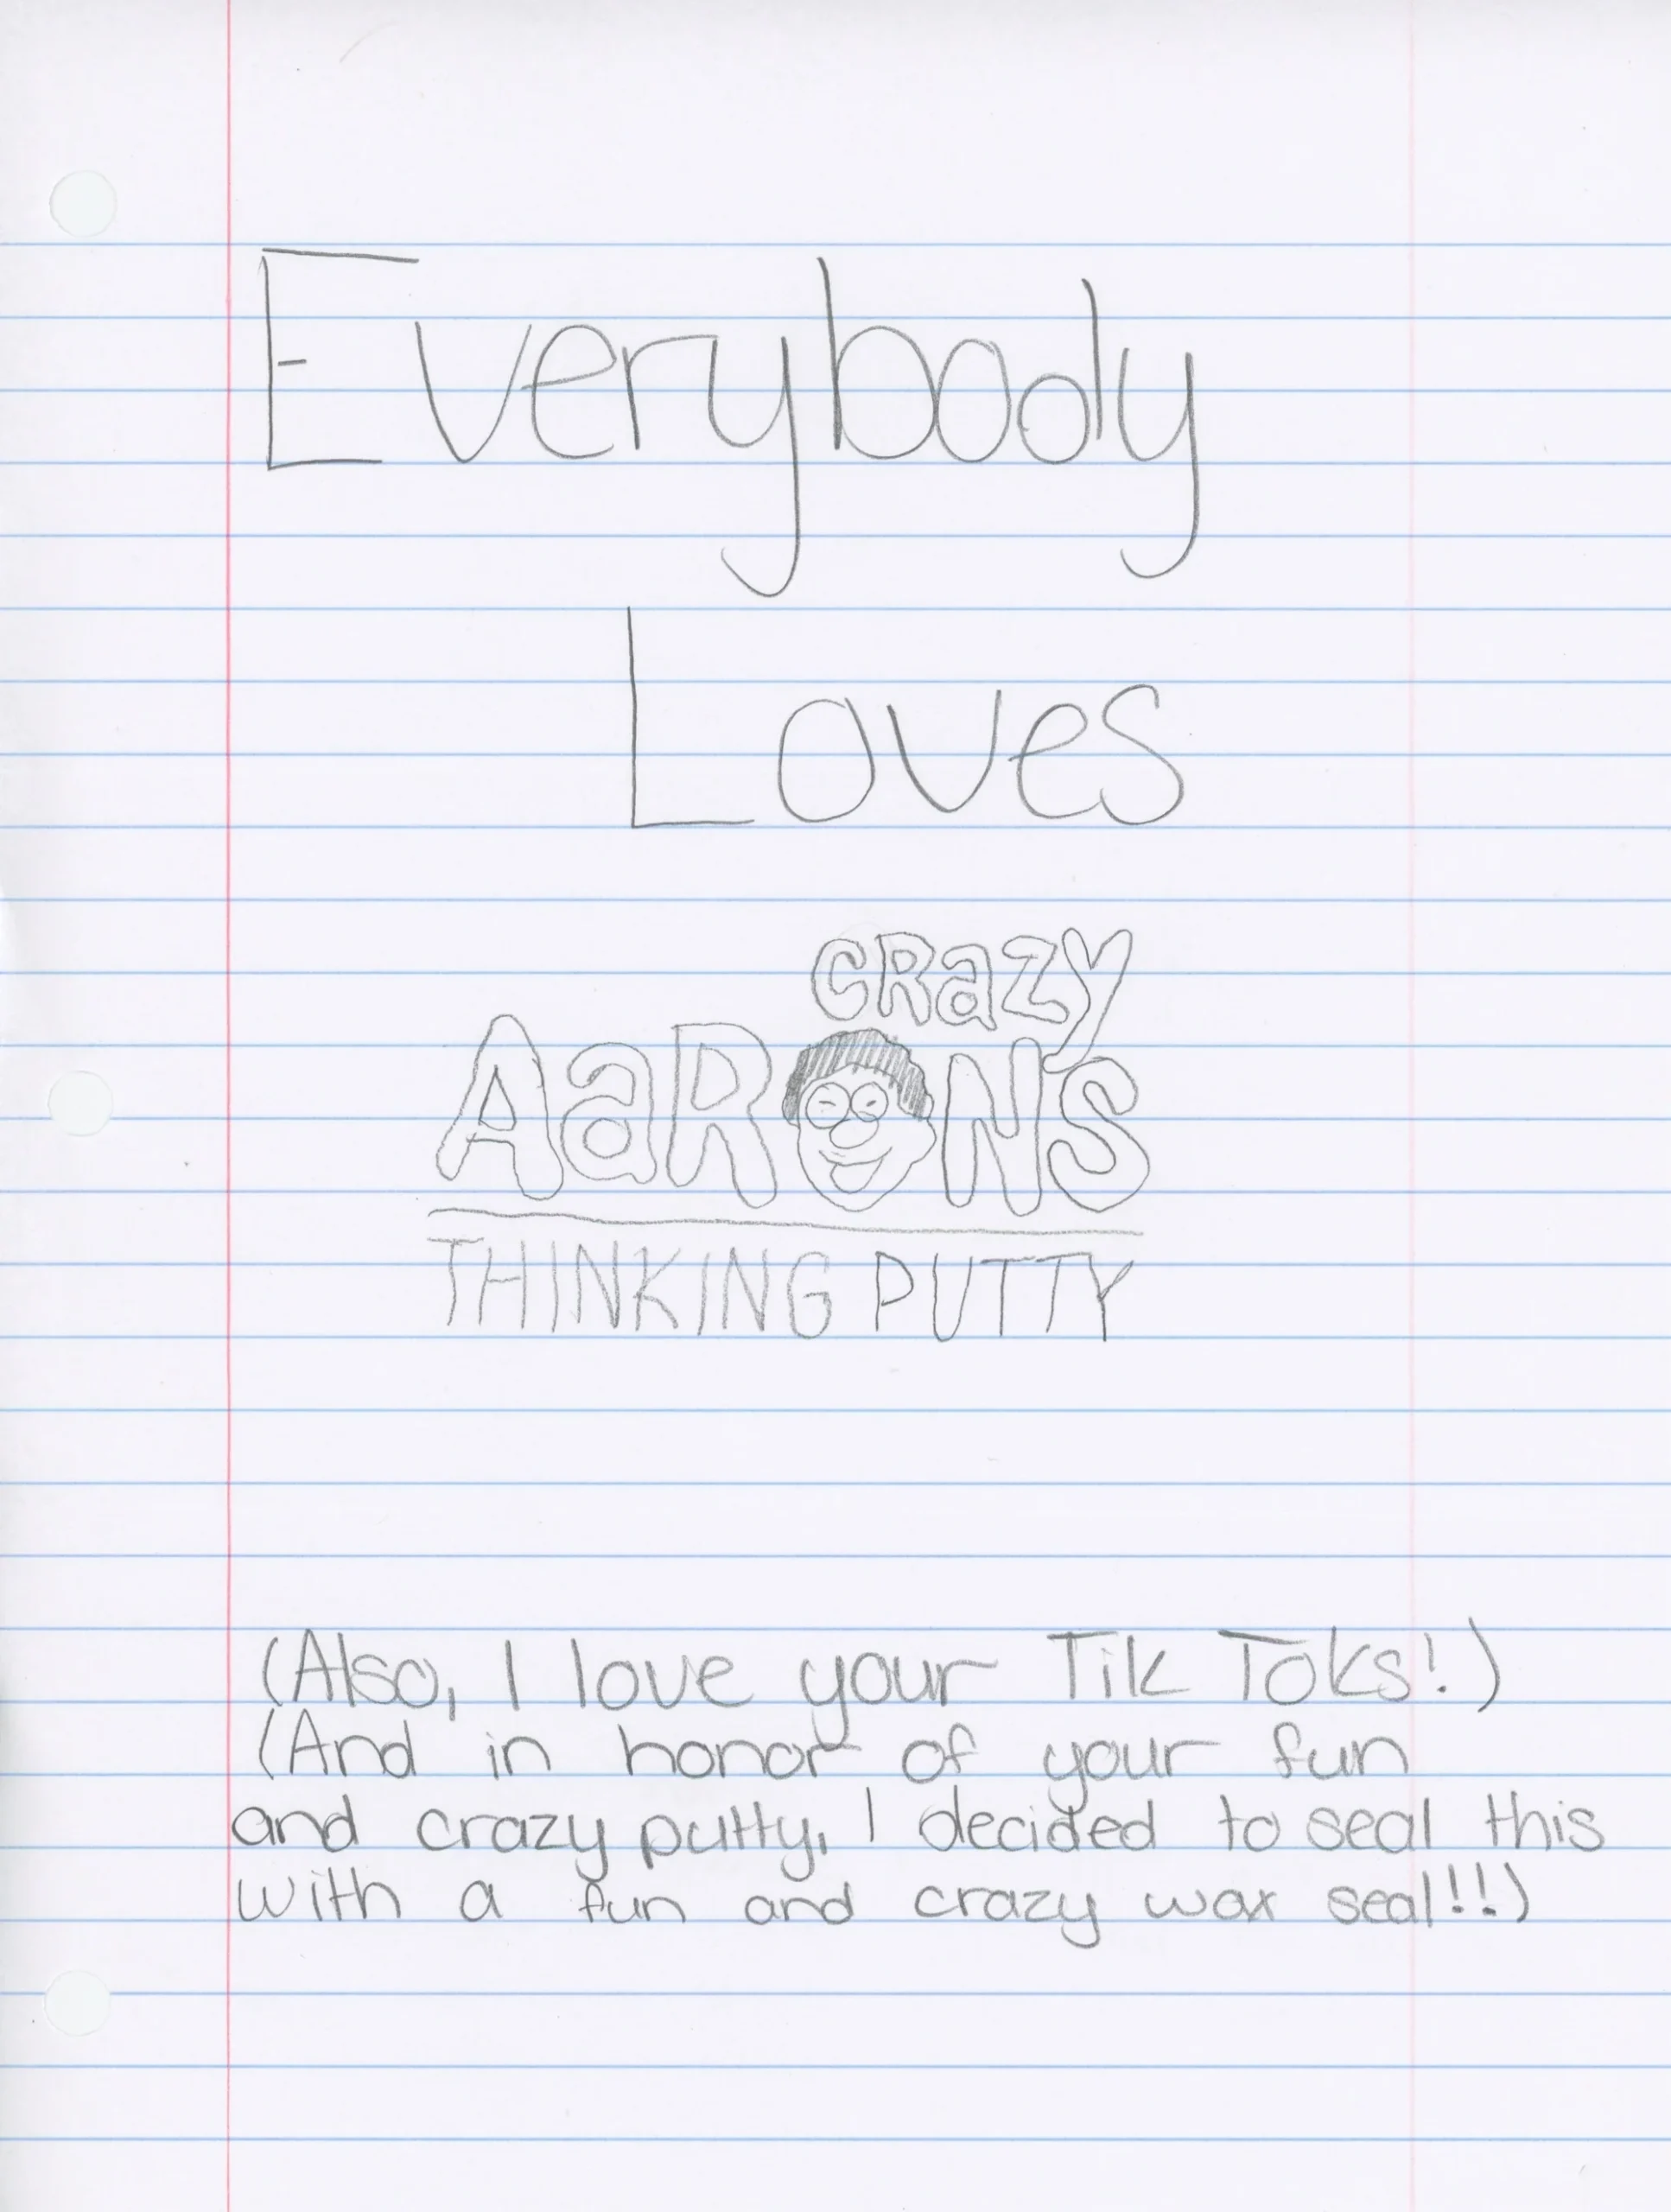 Everybody
Loves
CRaZY
AaRON'S
THINKING PUTTY
(Also, I love your Tik Toks!)
(And in honor of your fun
and crazy putty, I decided to seal this
with a fun and crazy wax seal!!!)